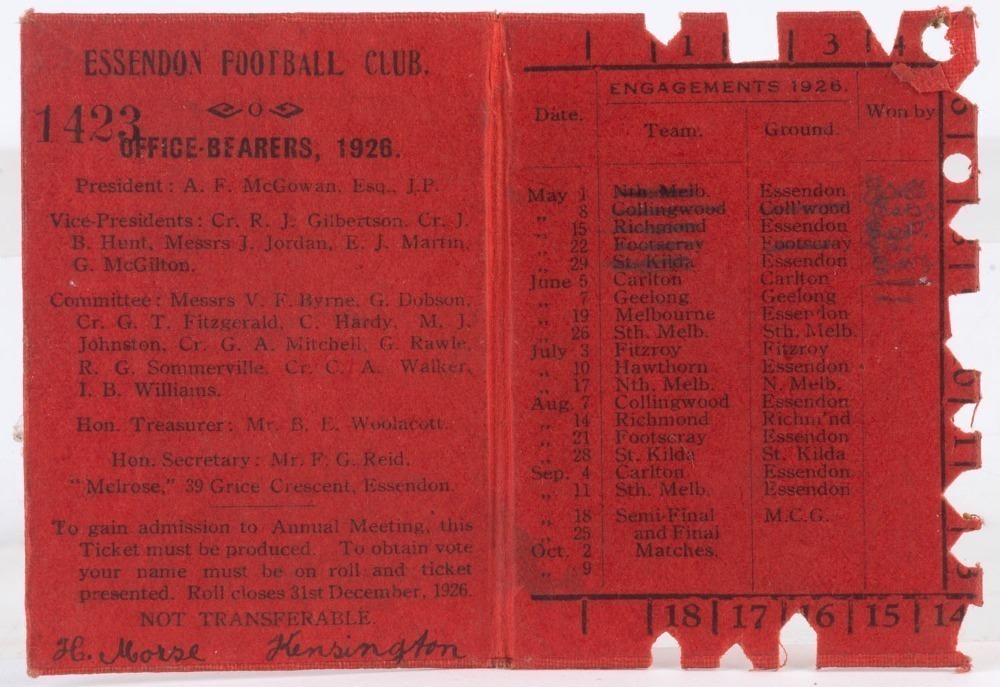 ESSENDON FOOTBALL CLUB.
O
1423
OFFICE-BEARERS, 1926.
President: A. F. McGowan, Esq., J.P.
Vice-Presidents: Cr. R. J. Gilbertson, Cr. J.
B. Hunt, Messrs J. Jordan, E. J. Martin,
G. McGilton.
Committee: Messrs V. F. Byrne, G. Dobson,
Cr. G. T. Fitzgerald, C. Hardy, M. J.
Johnston, Cr. G. A. Mitchell, G. Rawle,
R. G. Sommerville, Cr. C. A. Walker,
I. B. Williams.
Hon. Treasurer: Mr. B. E. Woolacott.
Hon. Secretary: Mr. F. G. Reid,
"Melrose," 39 Grice Crescent, Essendon.
To gain admission to Annual Meeting, this
Ticket must be produced. To obtain vote
your name must be on roll and ticket
presented. Roll closes 31st December, 1926.
NOT TRANSFERABLE.
H. Morse Kensington
1 3 4
ENGAGEMENTS 1926.
Date. Team. Ground. Won by
May 1 Nth. Melb. Essendon
" 8 Collingwood Coll'wood
" 15 Richmond Essendon
" 22 Footscray Footscray
" 29 St. Kilda Essendon
June 5 Carlton Carlton
" 7 Geelong Geelong
" 19 Melbourne Essendon
" 26 Sth. Melb. Sth. Melb.
July 3 Fitzroy Fitzroy
" 10 Hawthorn Essendon
" 17 Nth. Melb. N. Melb.
Aug. 7 Collingwood Essendon
" 14 Richmond Richm'nd
" 21 Footscray Essendon
" 28 St. Kilda St. Kilda
Sep. 4 Carlton Essendon
" 11 Sth. Melb. Essendon
" 18 Semi-Final M.C.G.
" 25 and Final
Oct. 2 Matches.
" 9
11
13
18 17 16 15 14